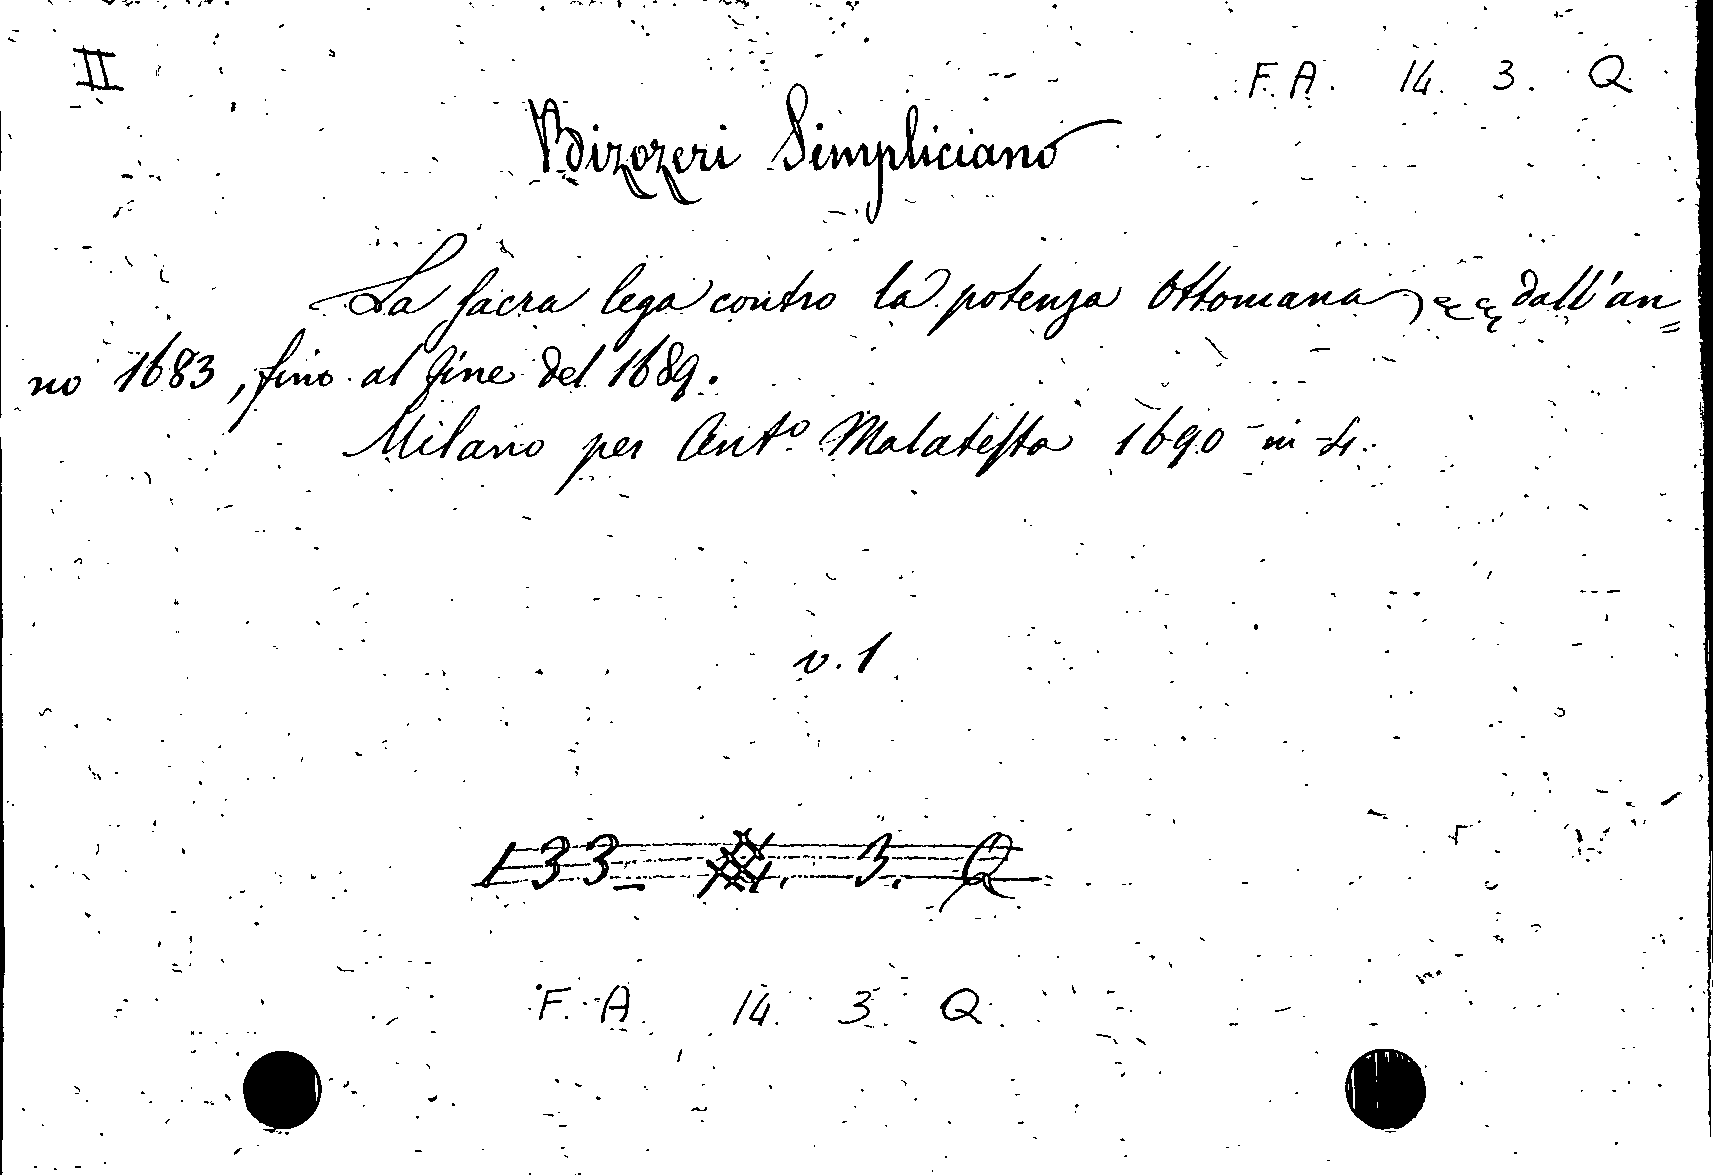 II
F. A. 14. 3. Q.
Bizozeri Simpliciano
La sacra lega contro la potenza Ottomana dall'an=
no 1683, fino al fine del 1689.
Milano per Ant.º Malatesta 1690 in 4.
v. 1
133 3. Q
F. A. 14. 3. Q.